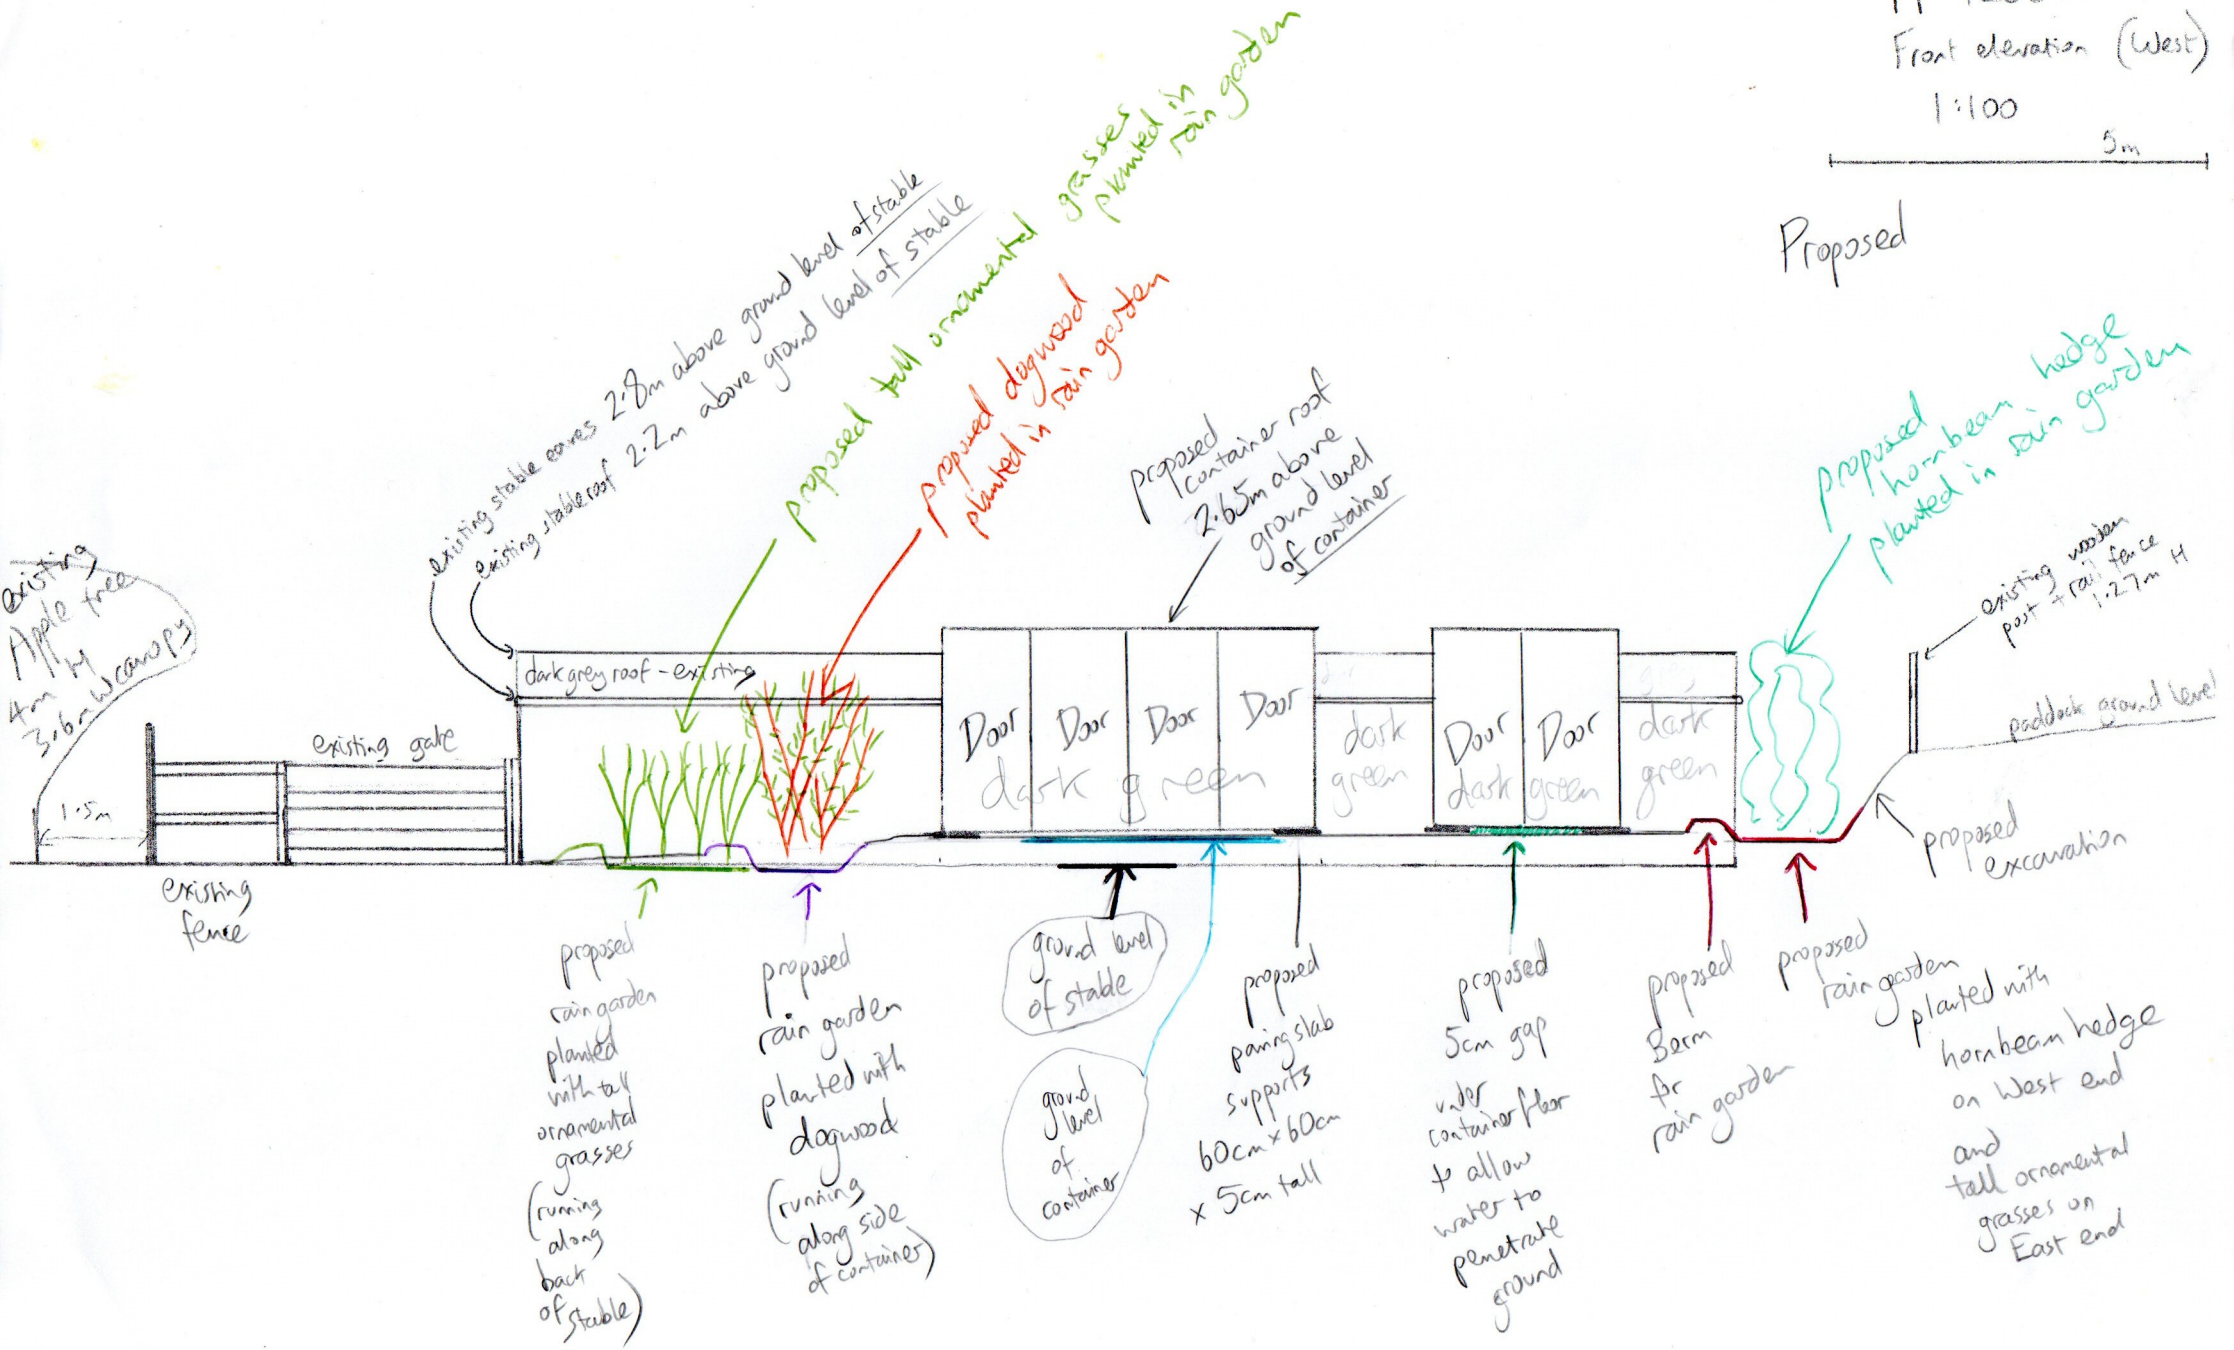 Front elevation (West)
1:100
5m
Proposed
existing stable eaves 2.8m above ground level of stable
existing stable roof 2.2m above ground level of stable
proposed tall ornamental grasses
planted in
rain garden
proposed dogwood
planted in rain garden
proposed
container roof
2.65m above
ground level
of container
proposed
hornbeam hedge
planted in rain garden
existing wooden
post + rail fence
1.27m H
paddock ground level
existing
Apple tree
4m H
3.6m W canopy
1.5m
existing gate
existing
fence
dark grey roof - existing
Door
Door
Door
Door
dark green
dark
green
Door
Door
dark green
grey
dark
green
proposed
excavation
proposed
rain garden
planted
with tall
ornamental
grasses
(running
along
back
of stable)
proposed
rain garden
planted with
dogwood
(running
along side
of container)
ground level
of stable
ground
level
of
container
proposed
paving slab
supports
60cm x 60cm
x 5cm tall
proposed
5cm gap
under
container floor
to allow
water to
penetrate
ground
proposed
Berm
for
rain garden
proposed
rain garden
planted with
hornbeam hedge
on West end
and
tall ornamental
grasses on
East end